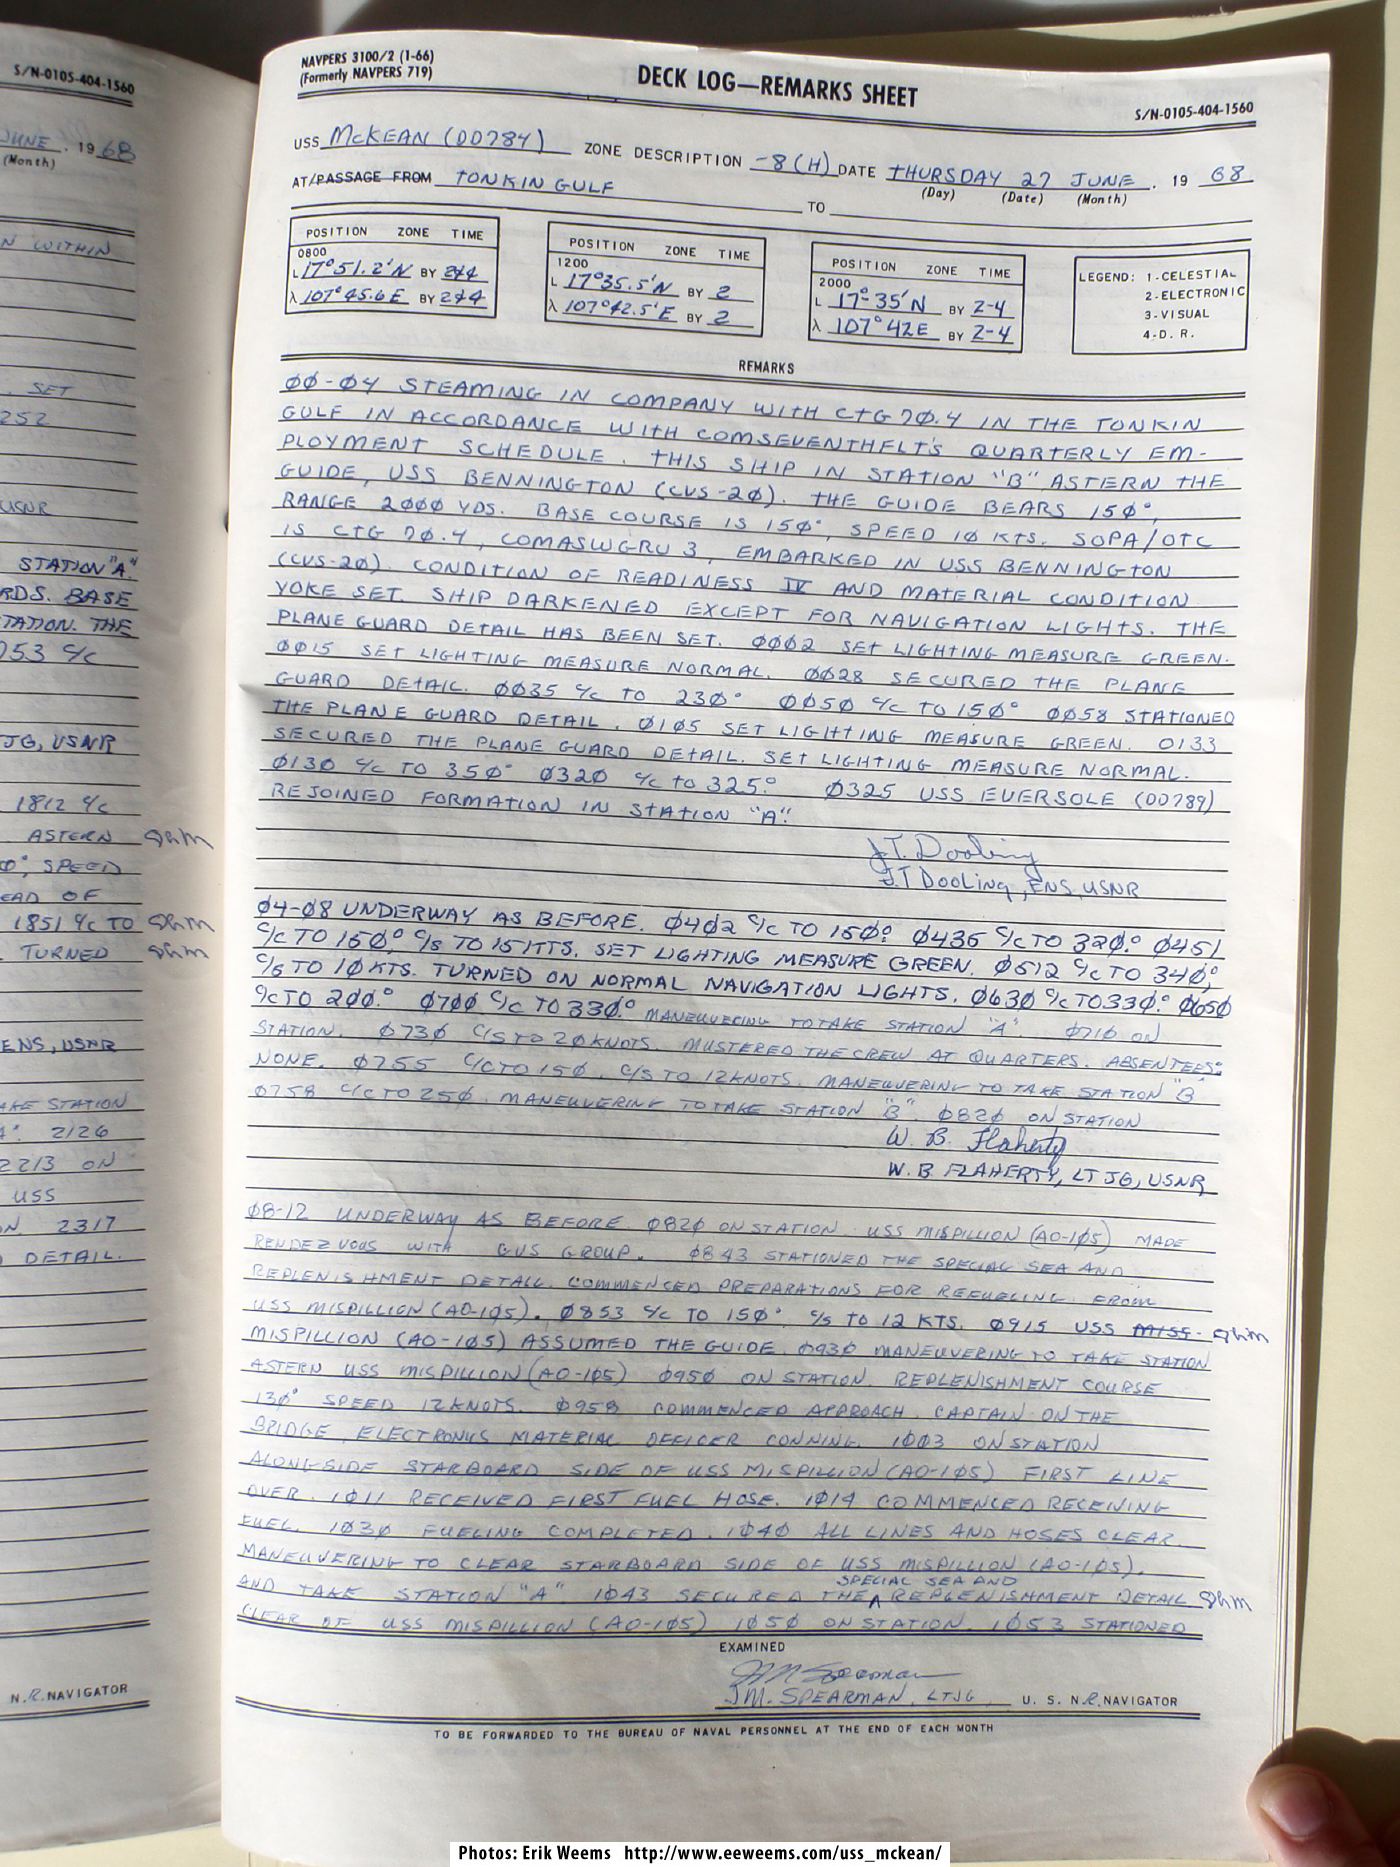 S/N-0105-404-1560
JUNE . 19 68
(Month)
N WITHIN
. SET
252
USNR
STATION "A".
RDS. BASE
STATION. THE
053 C/C
JG, USNR
1812 C/C
ASTERN
0°, SPEED
EAD OF
1851 C/C TO
TURNED
ENS, USNR
AKE STATION
A". 2126
2213 ON
USS
N. 2317
D DETAIL.
N. R. NAVIGATOR
NAVPERS 3100/2 (1-66)
(Formerly NAVPERS 719)
DECK LOG—REMARKS SHEET
S/N-0105-404-1560
USS McKEAN (DD784) ZONE DESCRIPTION -8 (H) DATE THURSDAY 27 JUNE . 19 68
(Day) (Date) (Month)
AT/PASSAGE FROM TONKIN GULF TO
POSITION ZONE TIME
0800
L 17°51.2'N BY 2&4
λ 107°45.6E BY 2&4
POSITION ZONE TIME
1200
L 17°35.5'N BY 2
λ 107°42.5'E BY 2
POSITION ZONE TIME
2000
L 17°35'N BY 2-4
λ 107°42E BY 2-4
LEGEND: 1-CELESTIAL
2-ELECTRONIC
3-VISUAL
4-D. R.
REMARKS
00-04 STEAMING IN COMPANY WITH CTG 70.4 IN THE TONKIN
GULF IN ACCORDANCE WITH COMSEVENTHFLT'S QUARTERLY EM-
PLOYMENT SCHEDULE. THIS SHIP IN STATION "B" ASTERN THE
GUIDE, USS BENNINGTON (CVS-20). THE GUIDE BEARS 150°,
RANGE 2000 YDS. BASE COURSE IS 150°, SPEED 10 KTS. SOPA/OTC
IS CTG 70.4, COMASWGRU 3, EMBARKED IN USS BENNINGTON
(CVS-20). CONDITION OF READINESS IV AND MATERIAL CONDITION
YOKE SET. SHIP DARKENED EXCEPT FOR NAVIGATION LIGHTS. THE
PLANE GUARD DETAIL HAS BEEN SET. 0002 SET LIGHTING MEASURE GREEN.
0015 SET LIGHTING MEASURE NORMAL. 0028 SECURED THE PLANE
GUARD DETAIL. 0035 C/C TO 230° 0050 C/C TO 150° 0058 STATIONED
THE PLANE GUARD DETAIL. 0105 SET LIGHTING MEASURE GREEN. 0133
SECURED THE PLANE GUARD DETAIL. SET LIGHTING MEASURE NORMAL.
0130 C/C TO 350° 0320 C/C TO 325° 0325 USS EVERSOLE (DD789)
REJOINED FORMATION IN STATION "A".
J.T. Dooling
J.T Dooling, ENS, USNR
04-08 UNDERWAY AS BEFORE. 0402 C/C TO 150°. 0435 C/C TO 320°. 0451
C/C TO 150°. C/S TO 15 KTS. SET LIGHTING MEASURE GREEN. 0512 C/C TO 340°,
C/S TO 10 KTS. TURNED ON NORMAL NAVIGATION LIGHTS. 0630 C/C TO 330°. 0650
C/C TO 200°. 0700 C/C TO 330°. MANEUVERING TO TAKE STATION "A" 0710 ON
STATION. 0730 C/S TO 20 KNOTS. MUSTERED THE CREW AT QUARTERS. ABSENTEES:
NONE. 0755 C/C TO 150, C/S TO 12 KNOTS. MANEUVERING TO TAKE STATION "B"
0758 C/C TO 250. MANEUVERING TO TAKE STATION "B". 0820 ON STATION
W. B. Flaherty
W. B FLAHERTY, LTJG, USNR
08-12 UNDERWAY AS BEFORE 0820 ON STATION. USS MISPILLION (AO-105) MADE
RENDEZVOUS WITH CVS GROUP. 0843 STATIONED THE SPECIAL SEA AND
REPLENISHMENT DETAIL. COMMENCED PREPARATIONS FOR REFUELING FROM
USS MISPILLION (AO-105). 0853 C/C TO 150°, C/S TO 12 KTS. 0915 USS MISS-
MISPILLION (AO-105) ASSUMED THE GUIDE. 0930 MANEUVERING TO TAKE STATION
ASTERN USS MISPILLION (AO-105) 0950 ON STATION. REPLENISHMENT COURSE
130° SPEED 12 KNOTS. 0958 COMMENCED APPROACH. CAPTAIN ON THE
BRIDGE, ELECTRONICS MATERIAL OFFICER CONNING. 1003 ON STATION
ALONGSIDE STARBOARD SIDE OF USS MISPILLION (AO-105) FIRST LINE
OVER. 1011 RECEIVED FIRST FUEL HOSE. 1014 COMMENCED RECEIVING
FUEL. 1030 FUELING COMPLETED. 1040 ALL LINES AND HOSES CLEAR.
MANEUVERING TO CLEAR STARBOARD SIDE OF USS MISPILLION (AO-105).
SPECIAL SEA AND
AND TAKE STATION "A" 1043 SECURED THE REPLENISHMENT DETAIL
CLEAR OF USS MISPILLION (AO-105) 1050 ON STATION. 1053 STATIONED
EXAMINED
JM Spearman
JM. SPEARMAN, LTJG, U. S. N.R. NAVIGATOR
TO BE FORWARDED TO THE BUREAU OF NAVAL PERSONNEL AT THE END OF EACH MONTH
Photos: Erik Weems http://www.eeweems.com/uss_mckean/